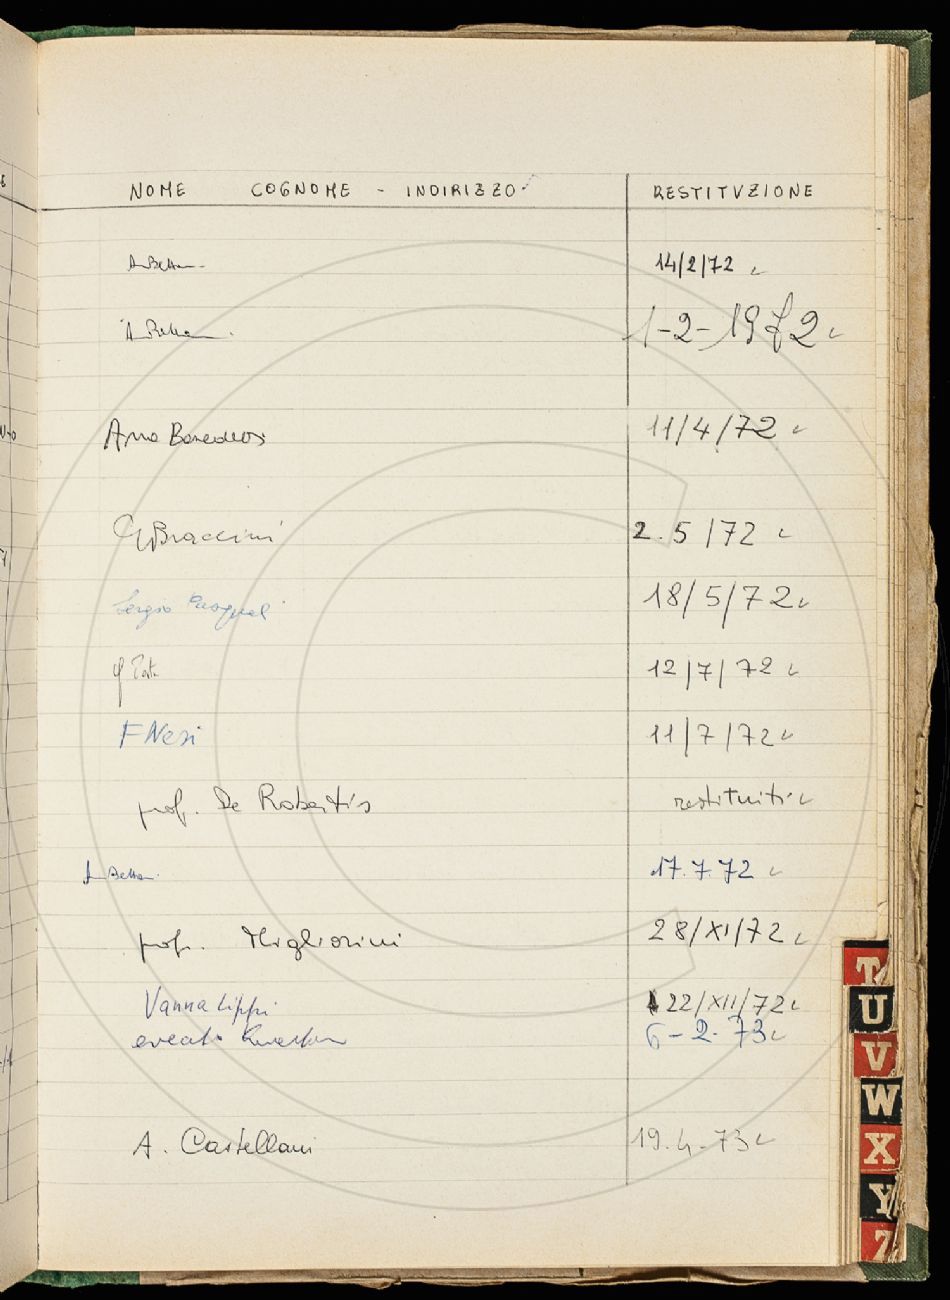 NOME COGNOME - INDIRIZZO RESTITVZIONE
14/2/72
1-2-1972
Anna 11/4/72
Braccini 2.5/72
Sergio 18/5/72
12/7/72
F Nesi 11/7/72
prof. De Robertis restituiti
17.7.72
prof. Migliorini 28/XI/72
Vanna Lippi 22/XII/72
6-2-73
A. Castellani 19.4-73
T
U
V
W
X
Y
Z